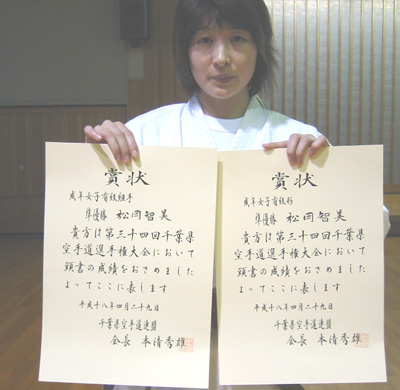 賞状
成年女子有級組手
準優勝 松岡智美
貴方は第三十四回千葉県
空手道選手権大会において
頭書の成績をおさめました
よってここに表します
平成十八年四月二十九日
千葉県空手道連盟
会長 本清秀雄
賞状
成年女子有級形
準優勝 松岡智美
貴方は第三十四回千葉県
空手道選手権大会において
頭書の成績をおさめました
よってここに表します
平成十八年四月二十九日
千葉県空手道連盟
会長 本清秀雄